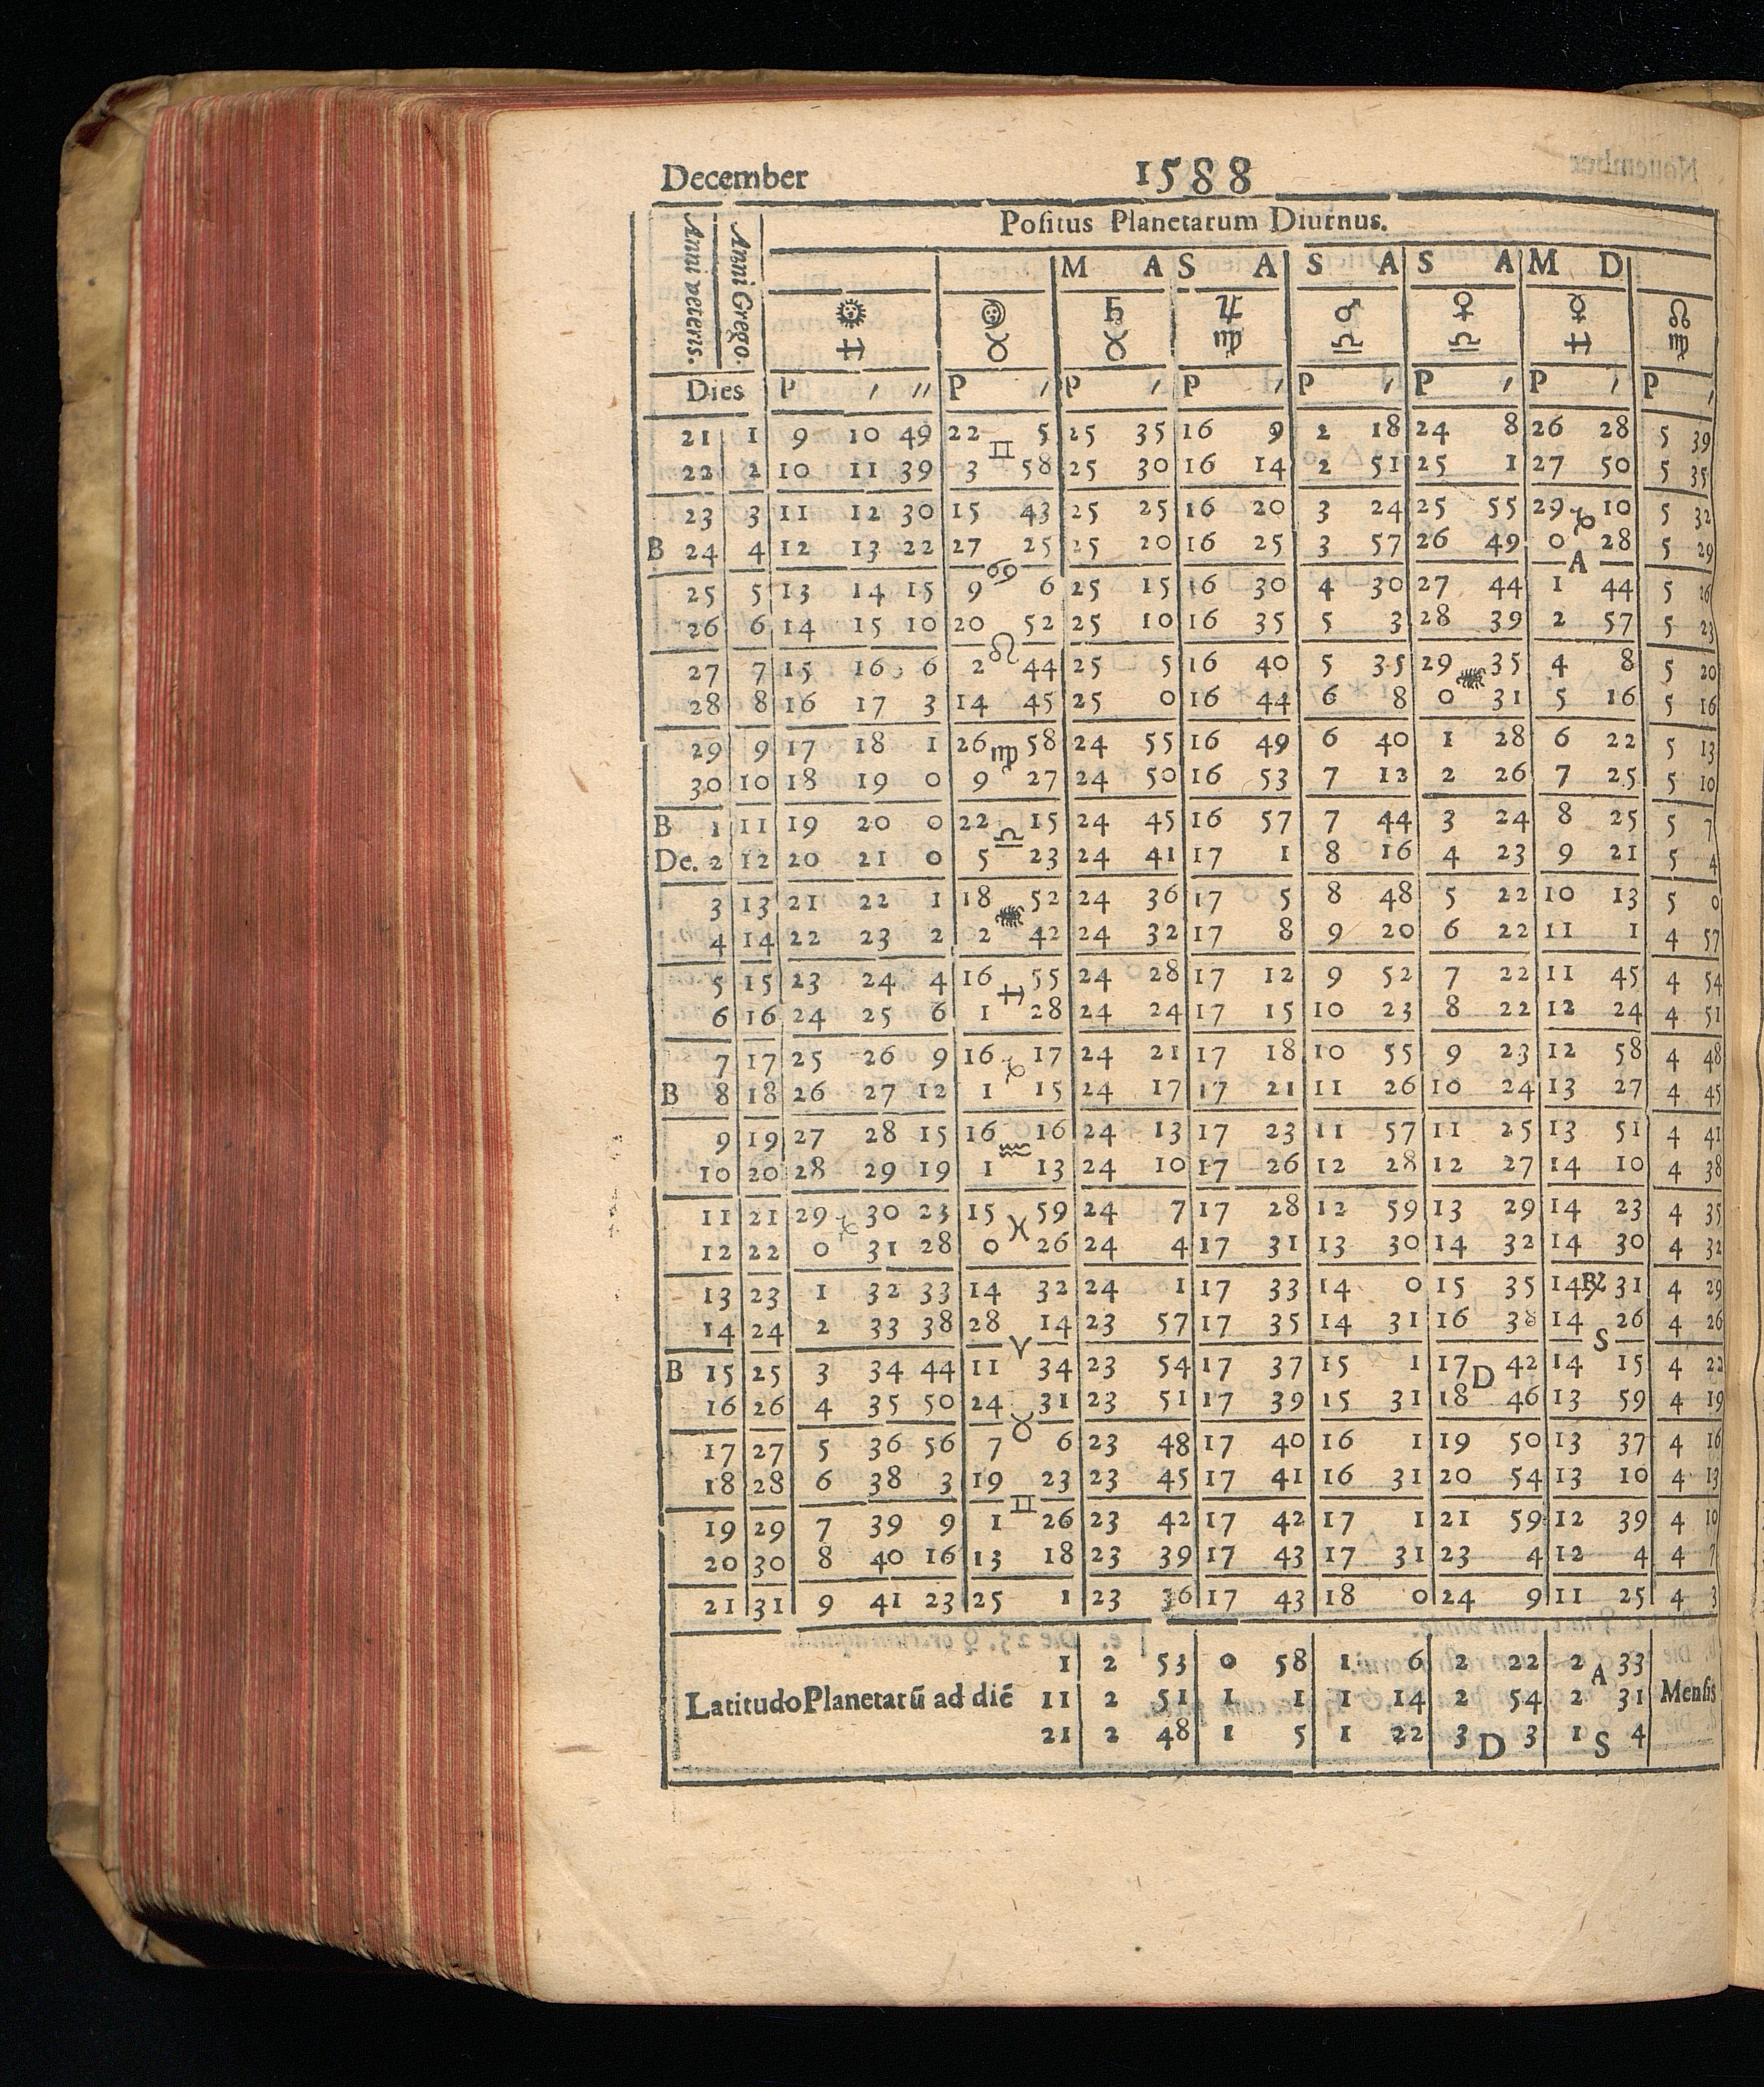 December 1588
Positus Planetarum Diurnus.
Anni veteris. Anni Grego.
M A S A S A S A M D
☉ ☽ ♄ ♃ ♂ ♀ ☿ ☊
♐ ♉ ♉ ♍ ♎ ♎ ♐ ♍
Dies P ′ ″ P ′ P ′ P ′ P ′ P ′ P ′ P ′
21 1 9 10 49 22 5 25 35 16 9 2 18 24 8 26 28 5 39
♊
22 2 10 11 39 3 58 25 30 16 14 2 51 25 1 27 50 5 35
23 3 11 12 30 15 43 25 25 16 20 3 24 25 55 29 ♑ 10 5 32
B 24 4 12 13 22 27 25 25 20 16 25 3 57 26 49 0 28 5 29
♋ A
25 5 13 14 15 9 6 25 15 16 30 4 30 27 44 1 44 5 26
26 6 14 15 10 20 52 25 10 16 35 5 3 28 39 2 57 5 23
♌
27 7 15 16 6 2 44 25 5 16 40 5 35 29 ♏ 35 4 8 5 20
28 8 16 17 3 14 45 25 0 16 44 6 8 0 31 5 16 5 16
29 9 17 18 1 26 ♍ 58 24 55 16 49 6 40 1 28 6 22 5 13
30 10 18 19 0 9 27 24 50 16 53 7 12 2 26 7 25 5 10
B 1 11 19 20 0 22 ♎ 15 24 45 16 57 7 44 3 24 8 25 5 7
De. 2 12 20 21 0 5 23 24 41 17 1 8 16 4 23 9 21 5 4
3 13 21 22 1 18 ♏ 52 24 36 17 5 8 48 5 22 10 13 5 0
4 14 22 23 2 2 42 24 32 17 8 9 20 6 22 11 1 4 57
5 15 23 24 4 16 ♐ 55 24 28 17 12 9 52 7 22 11 45 4 54
6 16 24 25 6 1 28 24 24 17 15 10 23 8 22 12 24 4 51
7 17 25 26 9 16 ♑ 17 24 21 17 18 10 55 9 23 12 58 4 48
B 8 18 26 27 12 1 15 24 17 17 21 11 26 10 24 13 27 4 45
9 19 27 28 15 16 ♒ 16 24 13 17 23 11 57 11 25 13 51 4 41
10 20 28 29 19 1 13 24 10 17 26 12 28 12 27 14 10 4 38
11 21 29 ♑ 30 23 15 ♓ 59 24 7 17 28 12 59 13 29 14 23 4 35
12 22 0 31 28 0 26 24 4 17 31 13 30 14 32 14 30 4 32
13 23 1 32 33 14 32 24 1 17 33 14 0 15 35 14 ℞ 31 4 29
14 24 2 33 38 28 14 23 57 17 35 14 31 16 38 14 26 4 26
♈ S
B 15 25 3 34 44 11 34 23 54 17 37 15 1 17 D 42 14 15 4 22
16 26 4 35 50 24 31 23 51 17 39 15 31 18 46 13 59 4 19
♉
17 27 5 36 56 7 6 23 48 17 40 16 1 19 50 13 37 4 16
18 28 6 38 3 19 23 23 45 17 41 16 31 20 54 13 10 4 13
♊
19 29 7 39 9 1 26 23 42 17 42 17 1 21 59 12 39 4 10
20 30 8 40 16 13 18 23 39 17 43 17 31 23 4 12 4 4 7
21 31 9 41 23 25 1 23 36 17 43 18 0 24 9 11 25 4 3
1 2 53 0 58 1 6 2 22 2 A 33
Latitudo Planetarũ ad diẽ 11 2 51 1 1 1 14 2 54 2 31 Mensis
21 2 48 1 5 1 22 3 D 3 1 S 4